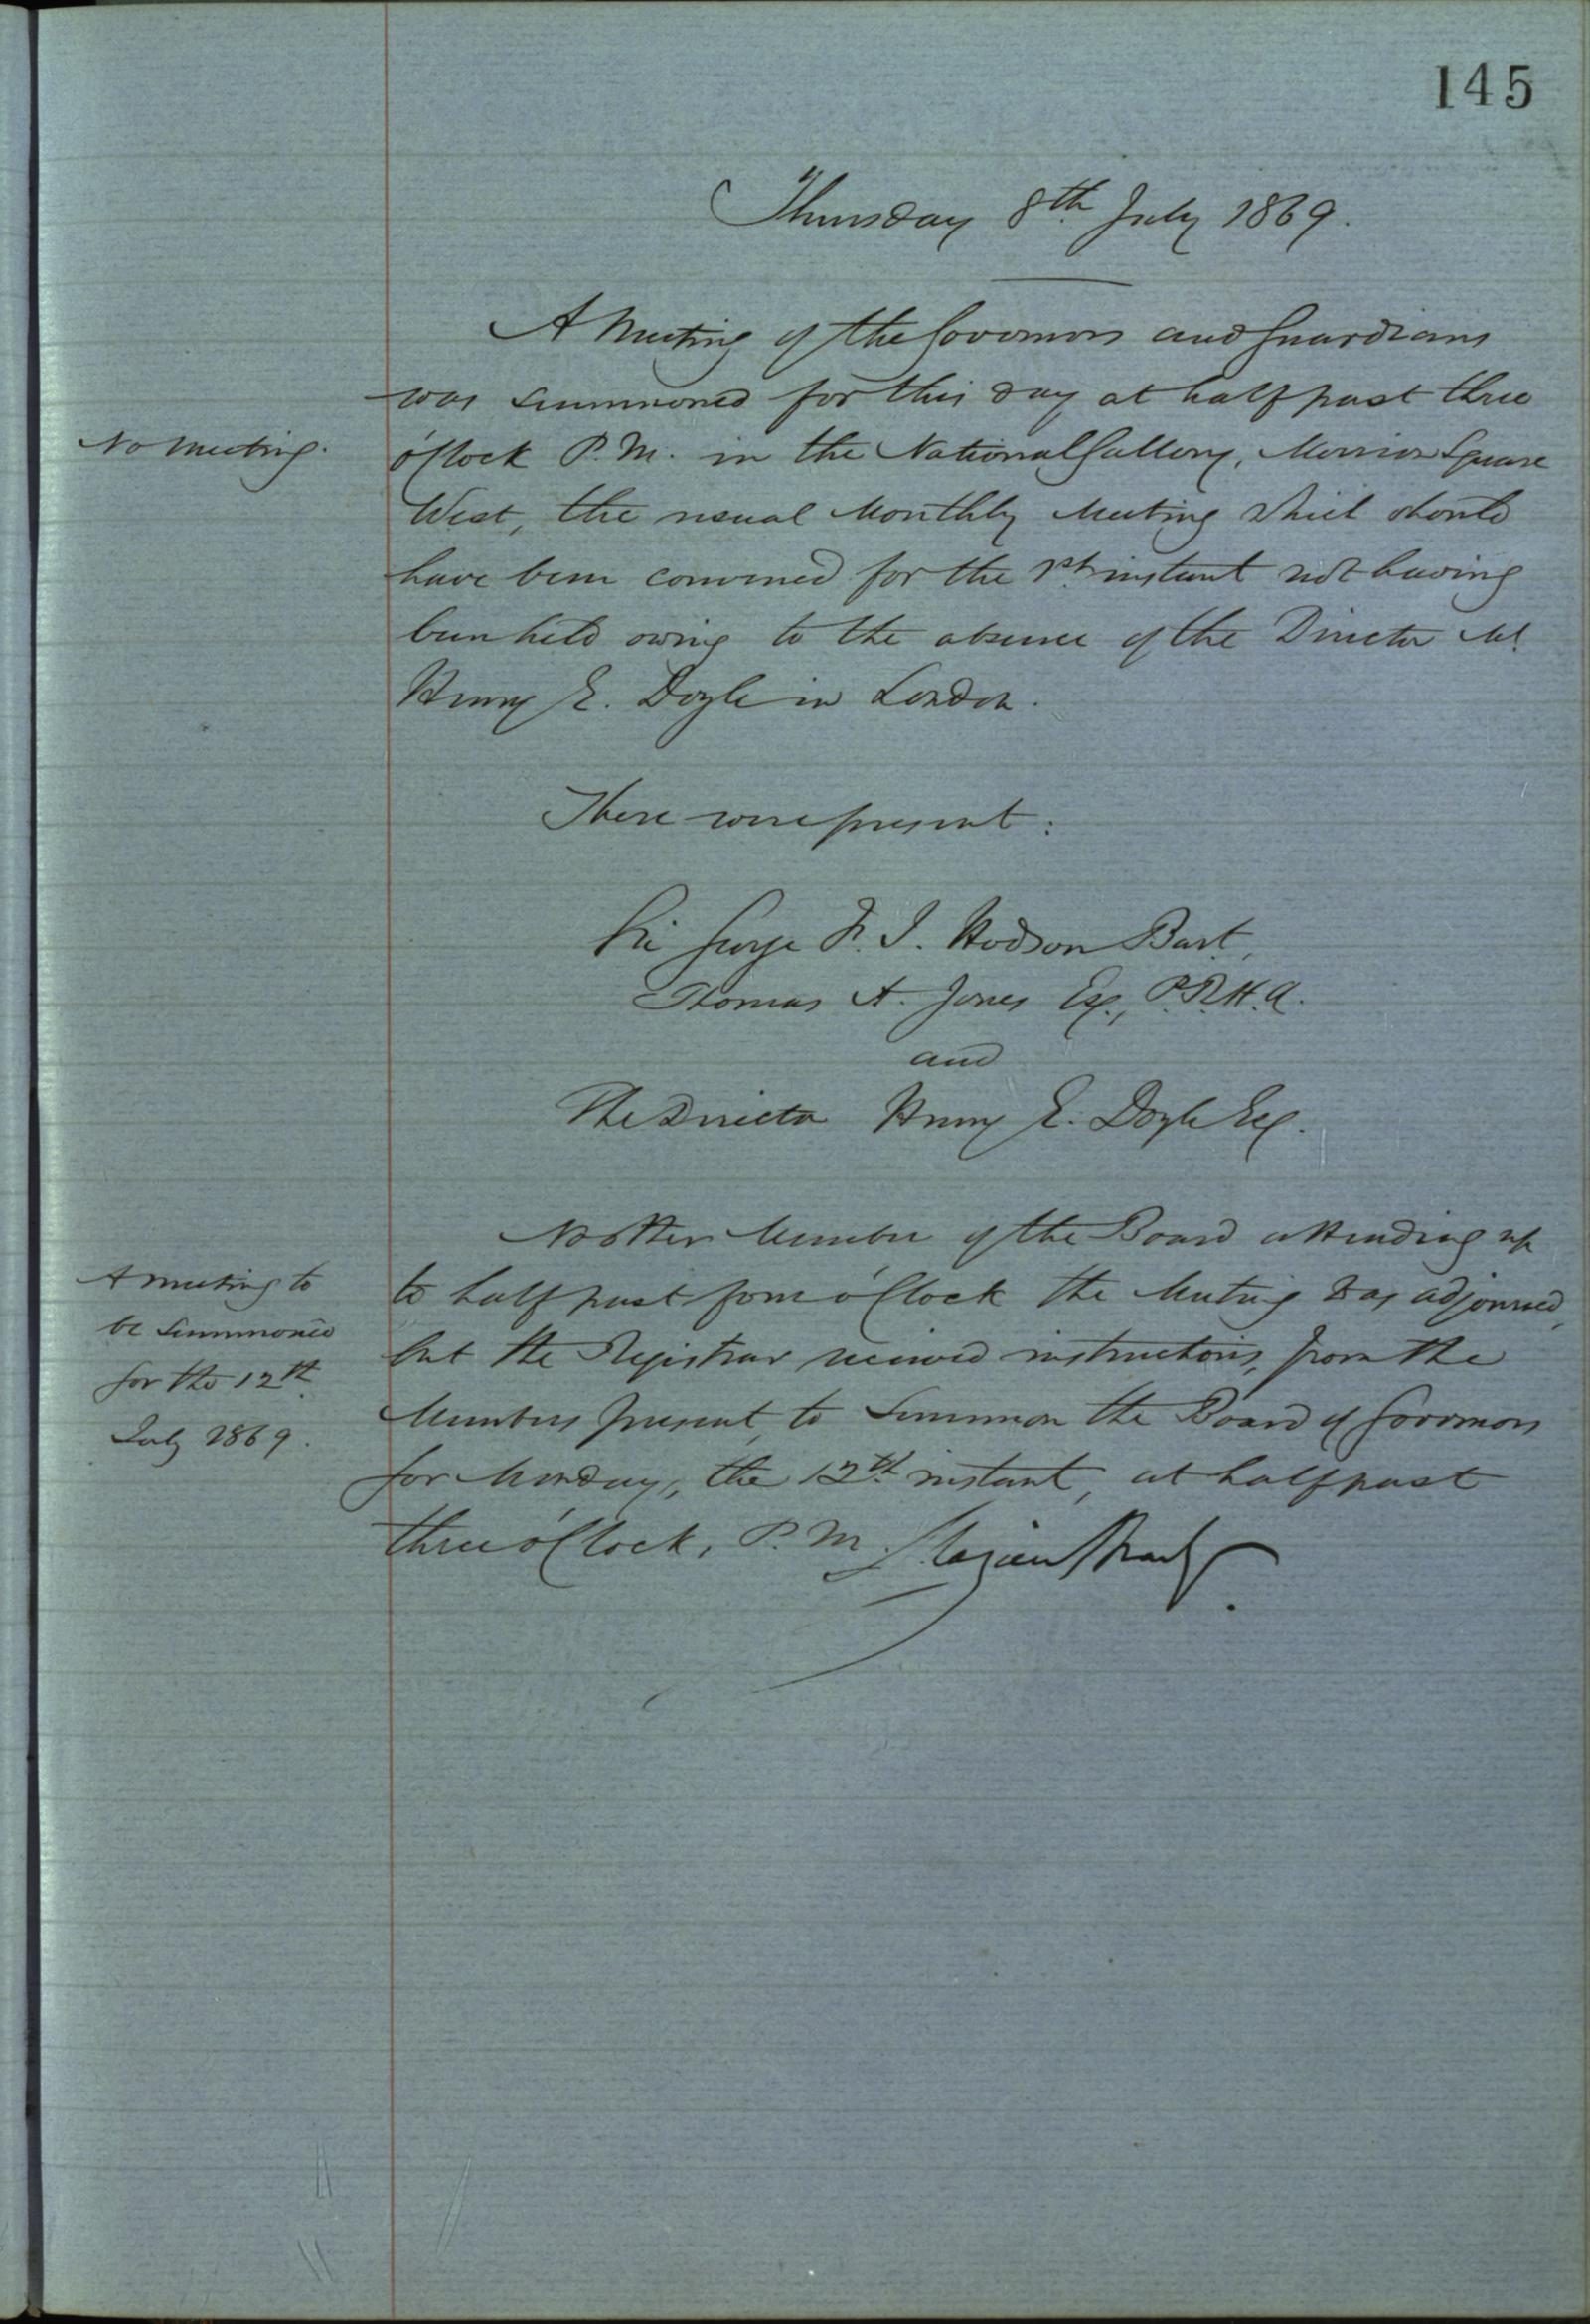 145
Thursday 8th July 1869.
A Meeting of the Governors and Guardians
was summoned for this day at half past three
No meeting.
o'Clock P.M. in the National Gallery, Merrion Square
West, the usual Monthly Meeting which should
have been convened for the 1st instant not having
been held owing to the absence of the Director Mr.
Henry E. Doyle in London.
There were present:
Sir George F. J. Hodson Bart,
Thomas A. Jones Esq., P.R.H.A.
and
The Director Henry E. Doyle Esq.
No other Member of the Board attending up
A meeting to
to half past four o'Clock the Meeting was adjourned,
be summoned
but the Registrar received instructions, from the
for the 12th
Members present, to summon the Board of Governors
July 1869.
for Monday, the 12th instant, at half past
three o'Clock, P.M.